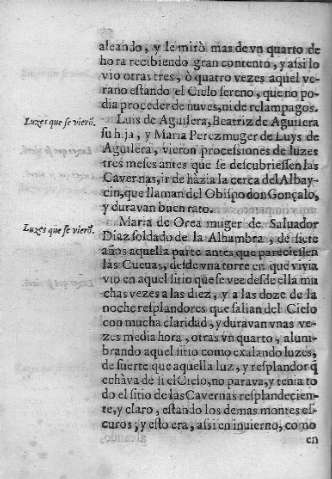 aleando, y le mirò mas de vn quarto de
hora recibiendo gran contento, y assi lo
vio otras tres, ò quatro vezes aquel ve-
rano estando el Cielo sereno, que no po-
dia proceder de nuves, ni de relampagos.
Luzes que se vierō.
Luis de Aguilera, Beatriz de Aguilera
su hija, y Maria Perez muger de Luys de
Aguilera, vieron processiones de luzes
tres meses antes que se descubriessen las
Cavernas, ir de hàzia la cerca del Albay-
cin, que llaman del Obispo don Gonçalo,
y duravan buen rato.
Luzes que se vierō.
Maria de Orea muger de Salvador
Diaz soldado de la Alhambra, de siete
años aquella parte antes que pareciessen
las Cuevas, desde vna torre en que vivia
vio en aquel sitio que se vee desde ella mu
chas vezes a las diez, y a las doze de la
noche resplandores que salian del Cielo
con mucha claridad, y duravan vnas ve-
zes media hora, otras vn quarto, alum-
brando aquel sitio como exalando luzes,
de suerte que aquella luz, y resplandor q̃
echàva de si el Cielo, no parava, y tenia to
do el sitio de las Cavernas resplandecien-
te, y claro, estando los demas montes es-
curos; y esto era, assi en invierno, como
en